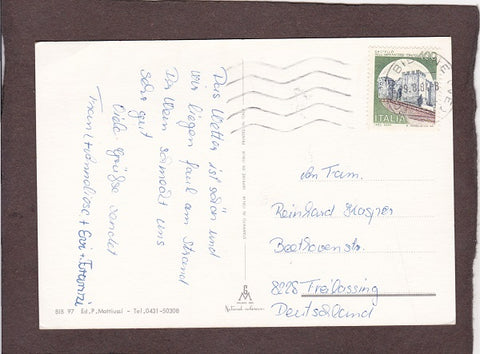 Das Wetter ist schön und
wir liegen faul am Strand
Der Wein schmeckt uns
sehr gut
Viele Grüße sendet
Franz + Annaliese + Evi +
an Fam.
Reinhard Kasper
Beethovenstr.
8228 Freilassing
Deutschland
ITALIA
BIB 97 Ed. P. Mattiussi - Tel. 0431-50308